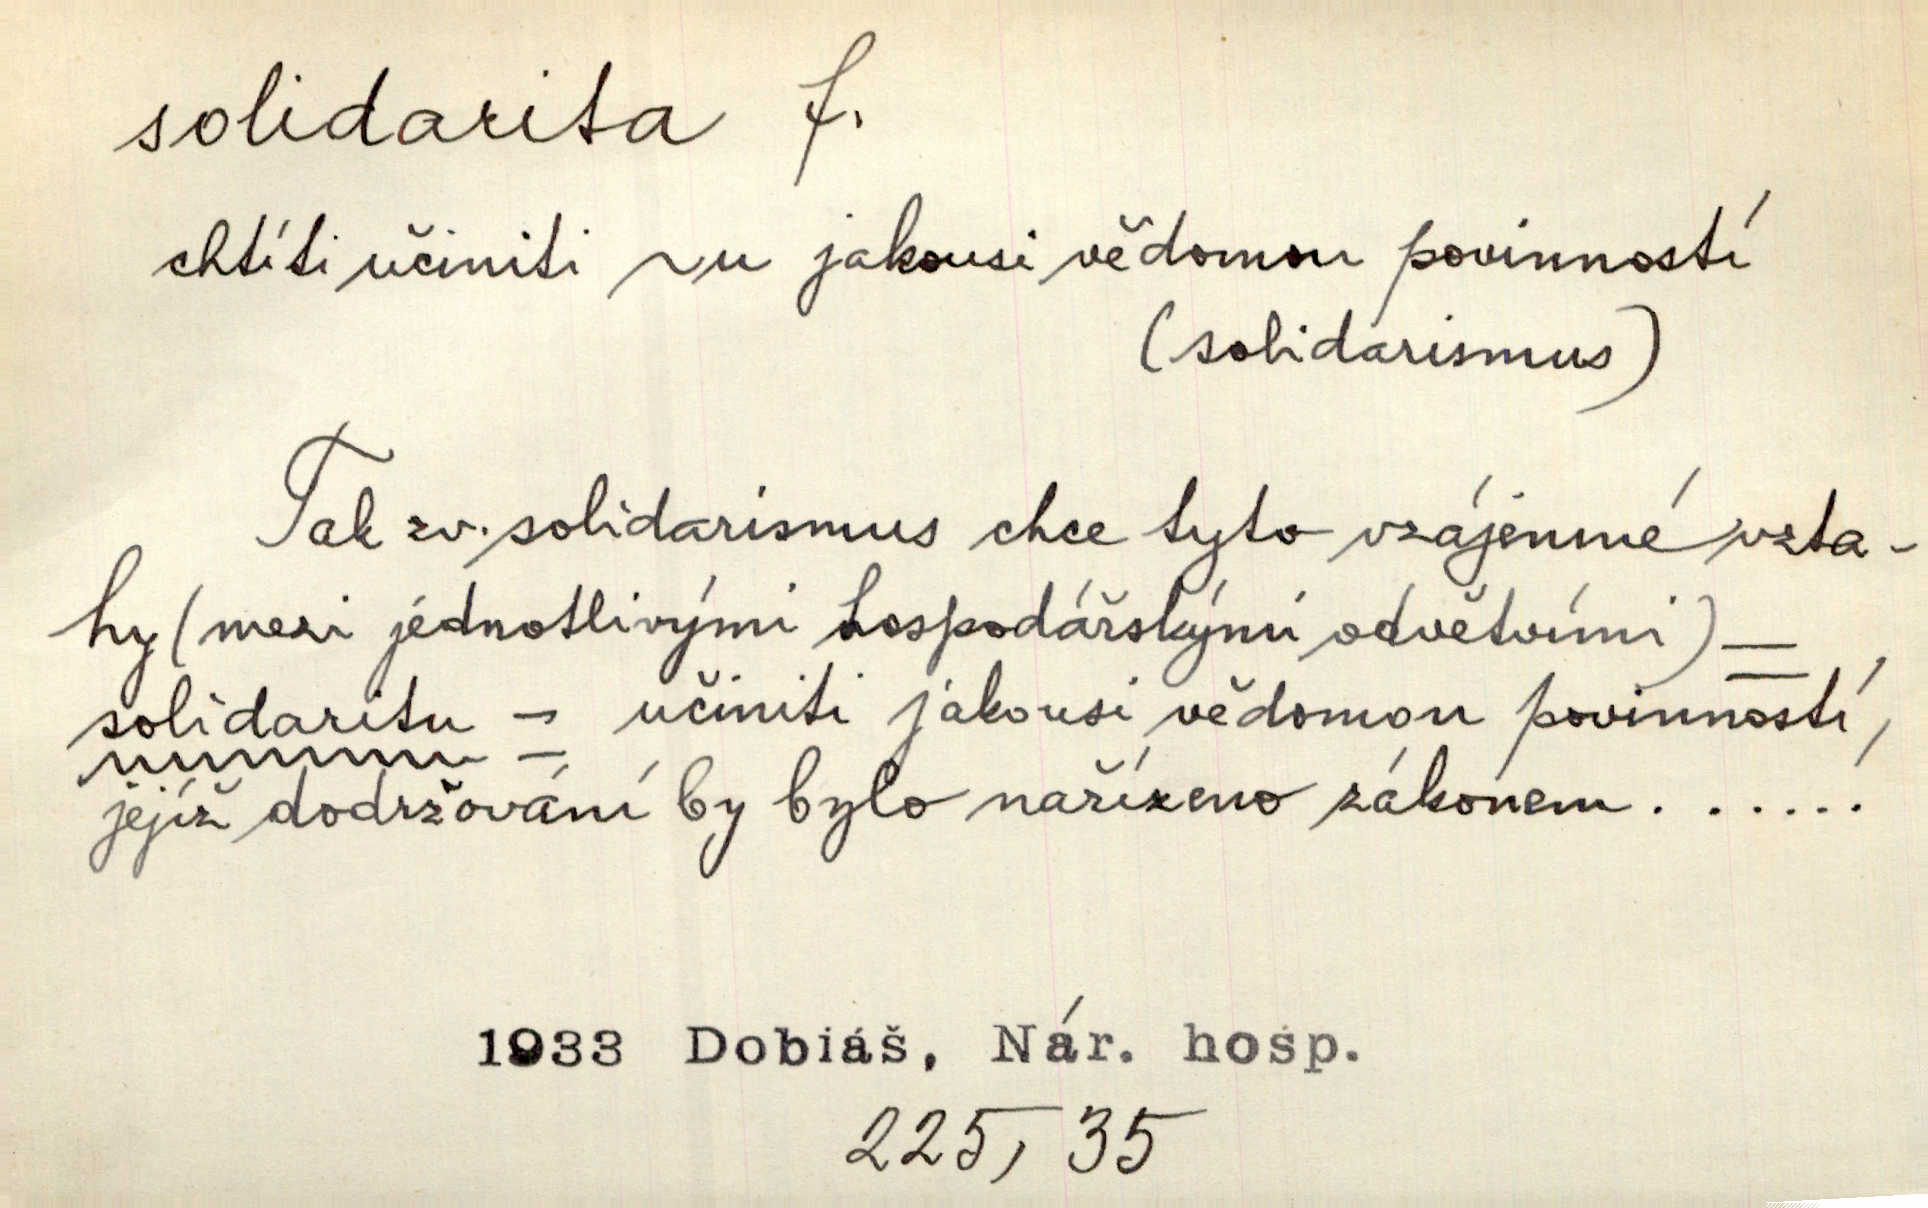 solidarita f.
chtíti učiniti ~u jakousi vědomou povinností
(solidarismus)
Tak zv. solidarismus chce tyto vzájemné vzta-
hy (mezi jednotlivými hospodářskými odvětvími) =
solidaritu = učiniti jakousi vědomou povinností,
jejíž dodržování by bylo nařízeno zákonem . . . . . .
1933 Dobiáš, Nár. hosp.
225, 35